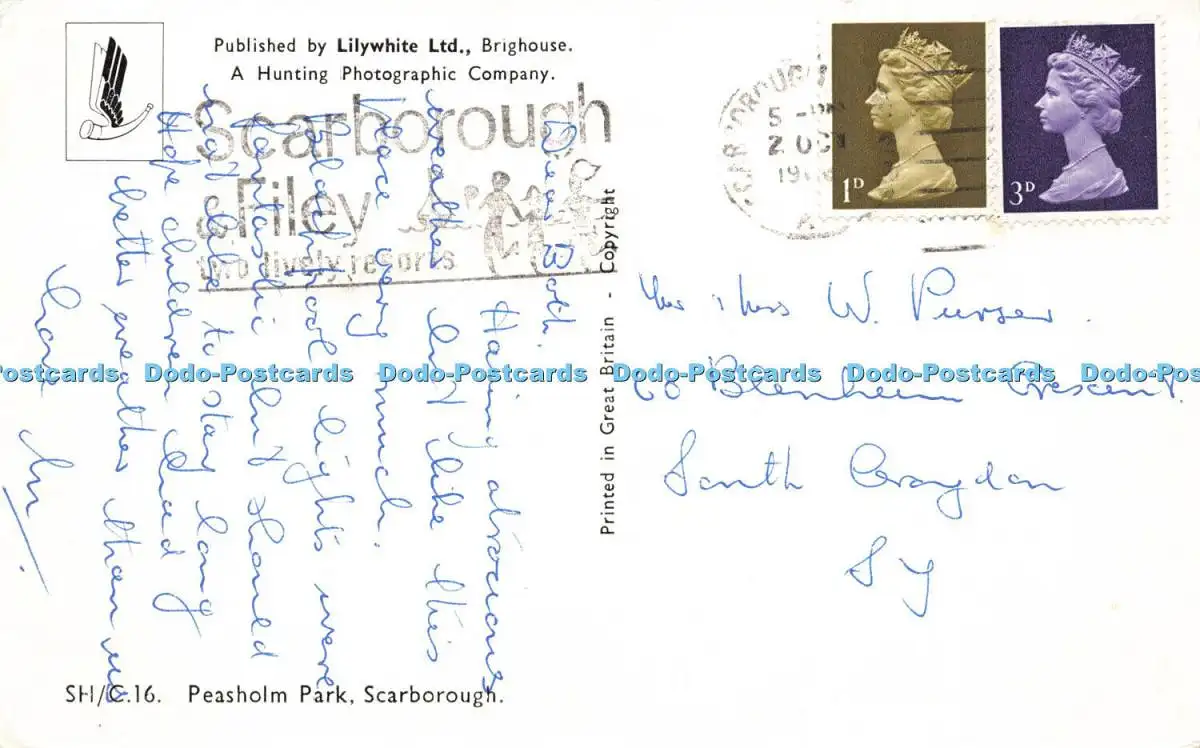 Published by Lilywhite Ltd., Brighouse.
A Hunting Photographic Company.
Scarborough
& Filey
two lively resorts
SCARBOROUGH
5 - PM
2 OCT
19
A
1D
3D
Dear Both.
Having atrocious
weather but like this
place very much.
Blackpool lights were
fantastic but should
not like to stay long
Hope children had
better weather than us
Printed in Great Britain - Copyright
Mr & Mrs W. Purser.
60 Blenheim Crescent.
South Croydon
Sy
Dodo-Postcards Dodo-Postcards Dodo-Postcards Dodo-Postcards Dodo-Postcards Dodo-Pos
SH/C.16. Peasholm Park, Scarborough.